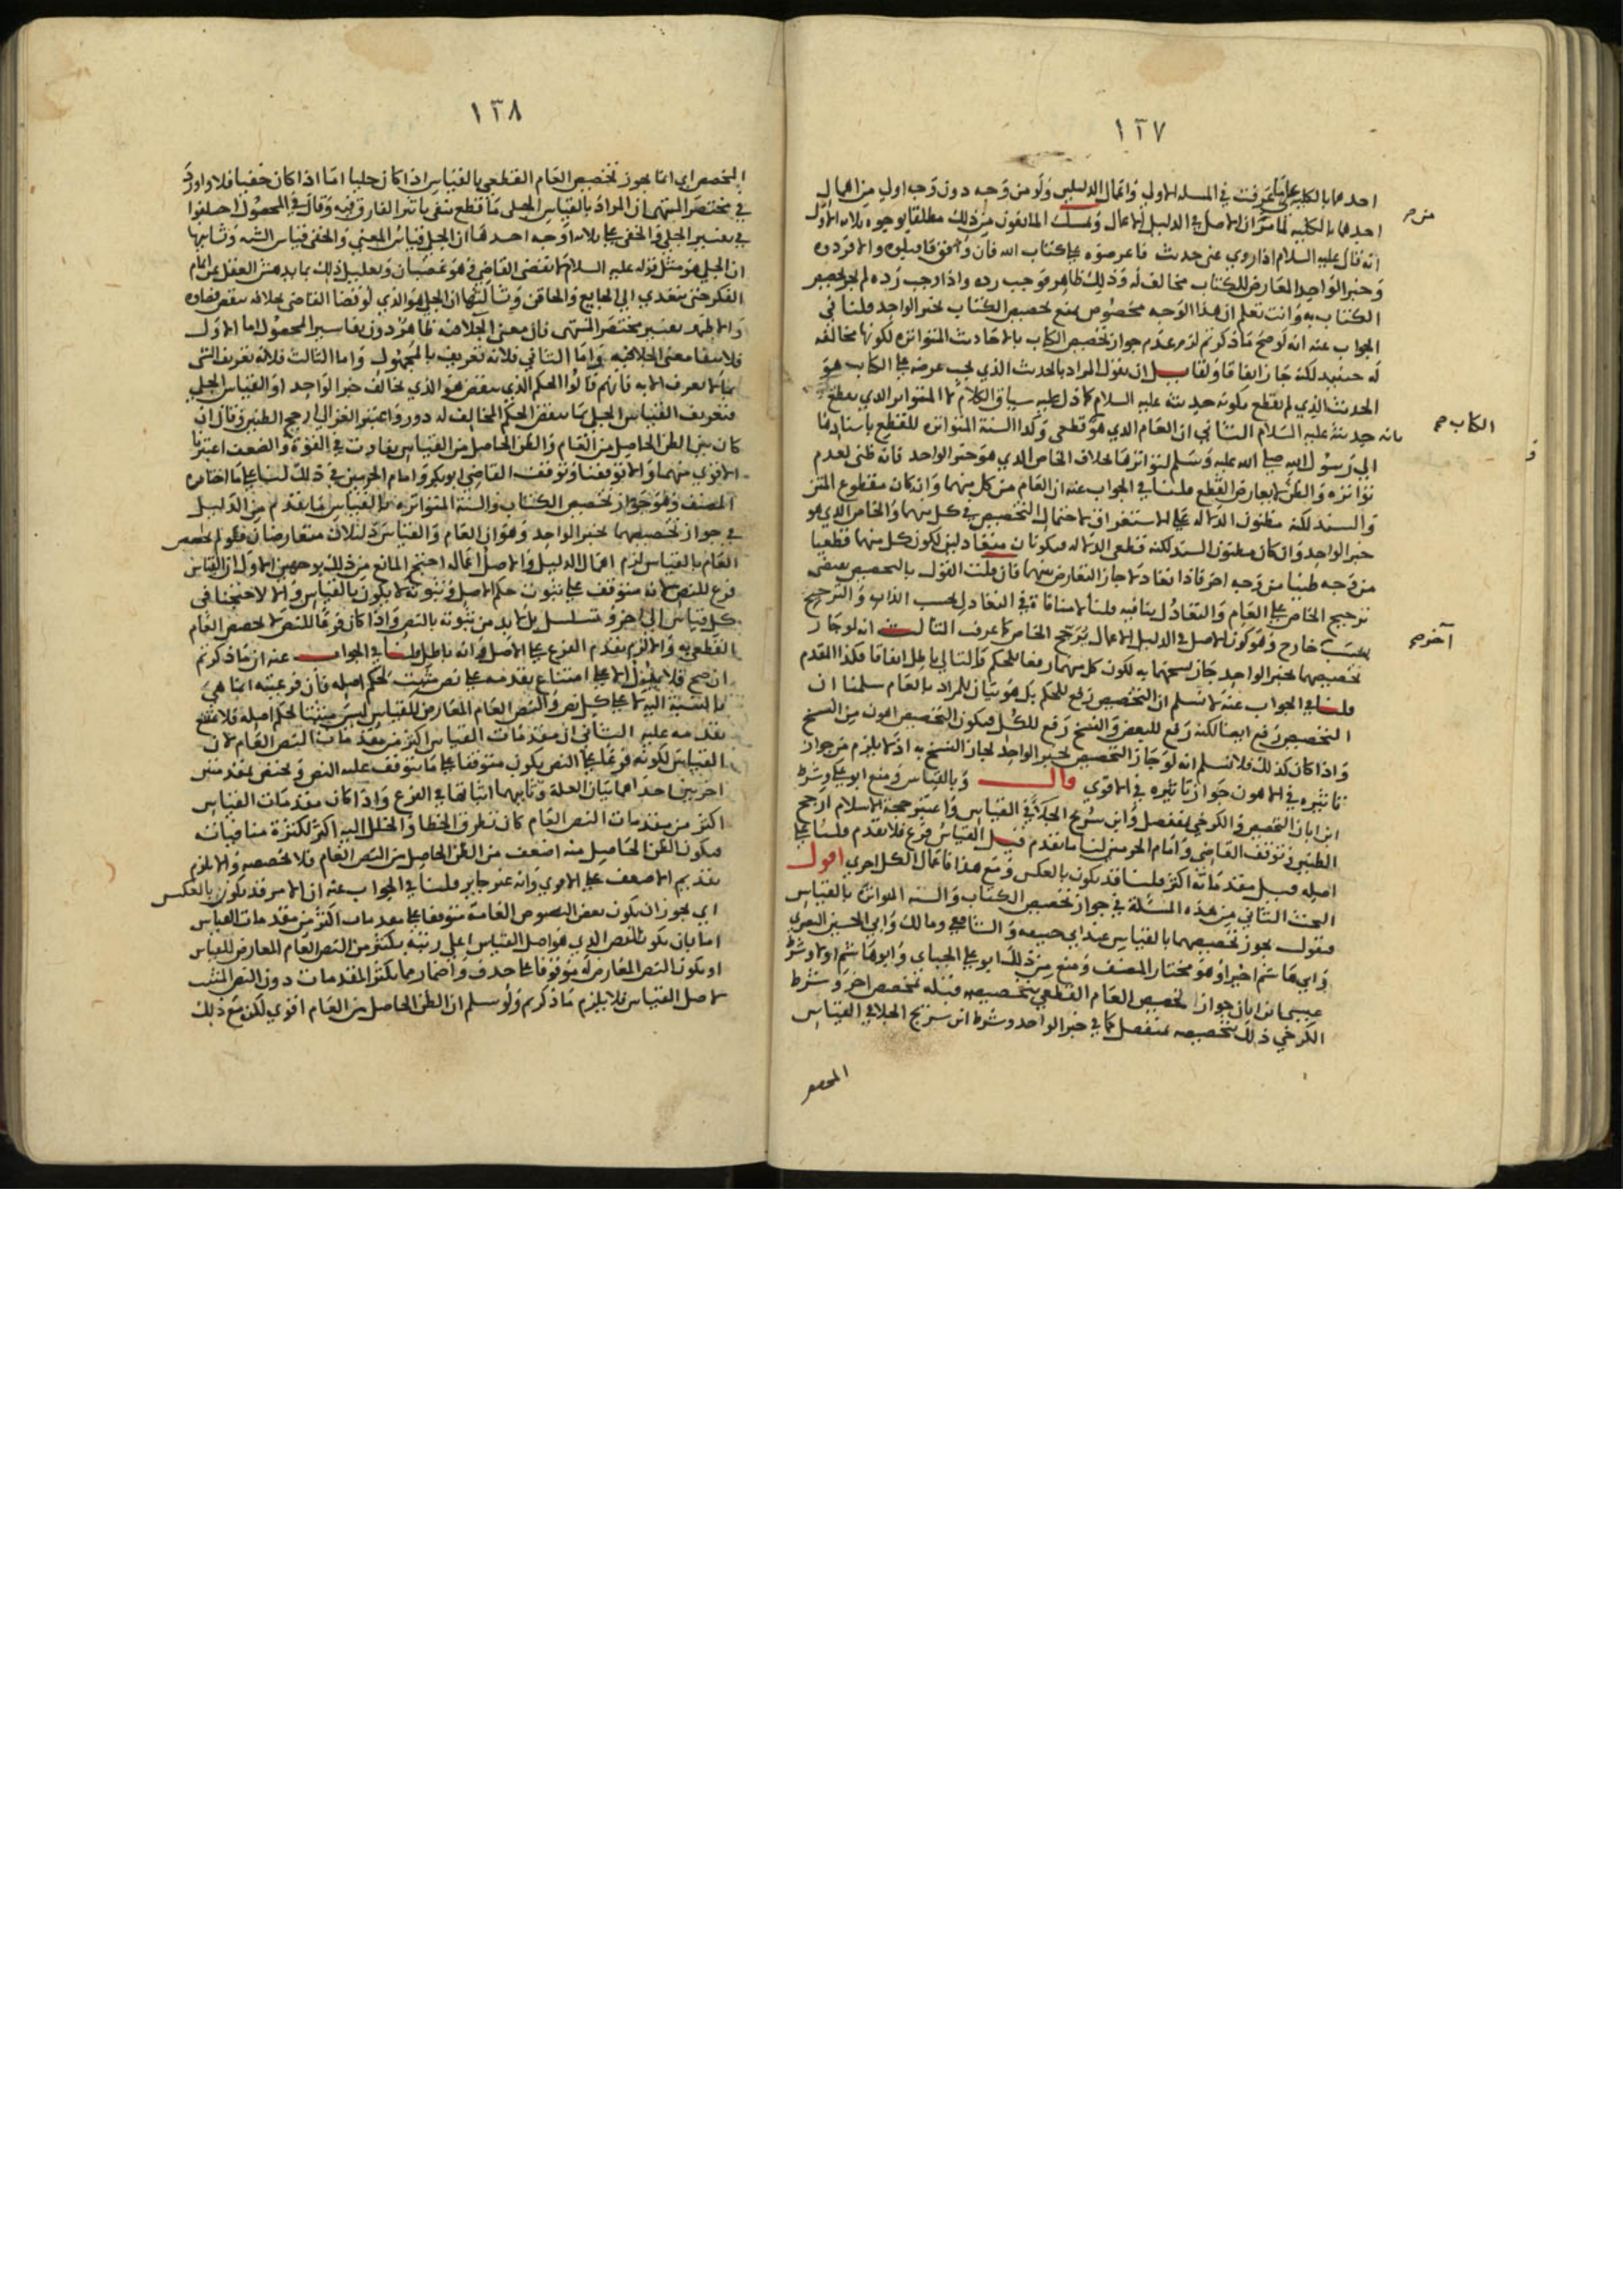 ١٣٧
احدهما بالكلية على ما عرفت في المسلة الاولى واعمال الدليلين ولو من وجه دون وجه اولى من اهمال
احدهما بالكلية لما مر ان الاصل في الدليل الاعمال وتمسك المانعون من ذلك مطلقا بوجوه ثلاثة الاول
من صح
انه قال عليه السلام اذا روي عني حديث فاعرضوه على كتاب الله فان وافق فاقبلوه والا فردوه
وخبر الواحد المعارض للكتاب مخالف له وذلك ظاهر فوجب رده واذا وجب رده لم يجز تخصيص
الكتاب به وانت تعلم ان هذا الوجه مخصوص بمنع تخصيص الكتاب بخبر الواحد قلنا في
الجواب عنه انه لو صح ما ذكرتم لزم عدم جواز تخصيص الكتاب بالاحاديث المتواترة لكونها مخالفة
له حينيذ لكنه جاز اتفاقا ولقايل ان يقول المراد بالحديث الذي يجب عرضه على الكتاب هو
الحديث الذي لم يقطع بكونه حديثه عليه السلام كما دل عليه سياق الكلام لا المتواتر الذي يقطع
بانه حديثه عليه السلام الثاني ان العام الذي هو قطعي وكذا السنة المتواترة للقطع باسنادها
الكتاب صح
الى رسول الله صلى الله عليه وسلم لتواترها بخلاف الخاص الذي هو خبر الواحد فانه ظني لعدم
تواتره والظن لا يعارض القطع قلنا في الجواب عنه ان العام من كل منهما وان كان مقطوع المتن
والسند لكنه مظنون الدلالة على الاستغراق لاحتمال التخصيص في كل منهما والخاص الذي هو
خبر الواحد وان كان مظنون السند لكنه قطعي الدلالة فيكونان متعادلين لكون كل منهما قطعيا
من وجه ظنيا من وجه اخر فاذا تعادلا جاز التعارض بينهما فان قلت القول بالتخصيص يقتضي
ترجيح الخاص على العام والتعادل ينافيه قلنا لا منافاة في التعادل بحسب الذات والترجيح
بسبب خارج وهو كون الاصل في الدليل الاعمال يرجح الخاص كما عرفت الثالث انه لو جاز
آخر صح
تخصيصهما بخبر الواحد جاز نسخهما به لكون كل منهما رفعا للحكم والتالي باطل اتفاقا فكذا المقدم
قلنا في الجواب عنه لا نسلم ان التخصيص رفع للحكم بل هو بيان للمراد بالعام سلمنا ان
التخصيص رفع ايضا لكنه رفع للبعض والنسخ رفع للكل فيكون التخصيص اهون من النسخ
واذا كان كذلك فلا نسلم انه لو جاز التخصيص بخبر الواحد لجاز النسخ به اذ لا يلزم من جواز
تاثيره في الاهون جواز تاثيره في الاقوى قال وبالقياس ومنع ابو علي وشرط
ابن ابان التخصيص والكرخي بمنفصل وابن سريج الجلاء في القياس واعتبر حجة الاسلام ارجح
الظنين وتوقف القاضي وامام الحرمين لنا ما تقدم قيل القياس فرع فلا يقدم قلنا على
اصله قيل مقدماته اكثر قلنا قد يكون بالعكس ومع هذا فاعمال الكل احرى اقول
البحث الثاني من هذه المسئلة في جواز تخصيص الكتاب والسنة المواترة بالقياس
فنقول يجوز تخصيصهما بالقياس عند ابي حنيفة والشافعي ومالك وابي الحسين البصري
وابي هاشم اخيرا وهو مختار المصنف ومنع من ذلك ابو علي الجباي وابو هاشم اولا وشرط
عيسى بن ابان جواز تخصيص العام القطعي بتخصيصه قبله بمخصص اخر وشرط
الكرخي ذلك بتخصيصه بمنفصل كما في خبر الواحد وشرط ابن سريج الجلا في القياس
١٣٨
المخصص اي انما يجوز تخصيص العام القطعي بالقياس اذا كان جليا اما اذا كان خفيا فلا واورد
في مختصر المنتهى ان المراد بالقياس الجلي ما قطع بنفي تاثير الفارق فيه وقال في المحصول اختلفوا
في تفسير الجلي والخفي على ثلاثة اوجه احدها ان الجلي قياس المعنى والخفي قياس الشبه وثانيها
ان الجلي هو مثل قوله عليه السلام لا يقضي القاضي وهو غضبان وتعليل ذلك بما يدهش العقل عن اتمام
الفكر حتى يتعدى الى الجايع والحاقن وثالثها ان الجلي هو الذي لو قضا القاضي بخلافه ينقض قضاوه
والاظهر تفسير مختصر المنتهى فان معنى الجلا فيه ظاهر دون تفاسير المحصول اما الاول
فلانتفا معنى الجلا فيه واما الثاني فلانه تعريف بالمجهول واما الثالث فلانه تعريف الشي
بما لا يعرف الا به فانهم قالوا الحكم الذي ينقض هو الذي يخالف خبر الواحد او القياس الجلي
فتعريف القياس الجلي بما ينقض الحكم المخالف له دور واعتبر الغزالي ارجح الظنين وقال ان
كان بين الظن الحاصل من العام والظن الحاصل من القياس تفاوت في القوة والضعف اعتبرنا
الاقوى منهما والا توقفنا وتوقف القاضي ابو بكر وامام الحرمين في ذلك لنا على ما اختاره
المصنف وهو جواز تخصيص الكتاب والسنة المتواترة بالقياس ما تقدم من الدليل
في جواز تخصيصهما بخبر الواحد وهو ان العام والقياس دليلان متعارضان فلو لم يخصص
العام بالقياس لزم اهمال الدليل والاصل اعماله احتج المانع من ذلك بوجهين الاول ان القياس
فرع للنص لانه متوقف على ثبوت حكم الاصل وثبوته لا يكون بالقياس والا لاحتجنا في
كل قياس الى اخر وتسلسل بل لا بد من ثبوته بالنص واذا كان فرعا للنص لا يخصص العام
القطعي به والا لزم تقدم الفرع على الاصل وانه باطل قلنا في الجواب عنه ان ما ذكرتم
ان صح فلا يدل الا على امتناع تقدمه على نص مثبت لحكم اصله فان فرعيته انما هي
بالنسبة اليه لا على كل نص والنص العام المعارض للقياس ليس مثبتا لحكم اصله فلا يمتنع
تقدمه عليه الثاني ان مقدمات القياس اكثر من مقدمات النص العام لان
القياس لكونه فرعا على النص يكون متوقفا على ما يتوقف عليه النص ويختص بمقدمتين
اخريين احداهما بيان العلة وثانيهما اثباتها في الفرع واذا كان مقدمات القياس
اكثر من مقدمات النص العام كان تطرق الخطا والخلل اليه اكثر لكثرة منافياته
فيكون الظن الحاصل منه اضعف من الظن الحاصل من النص العام فلا يخصصه والا لزم
تقديم الاضعف على الاقوى وانه غير جايز قلنا في الجواب عنه ان الامر قد يكون بالعكس
اي يجوز ان يكون بعض النصوص العامة متوقفا على مقدمات اكثر من مقدمات القياس
اما بان يكون النص الذي هو اصل القياس اعلى رتبة بكثير من النص العام المعارض للقياس
او يكون النص المعارض له متوقفا على حذف واضمار مما يكثر المقدمات دون النص المثبت
لاصل القياس فلا يلزم ما ذكرتم ولو سلم ان الظن الحاصل من العام اقوى لكن مع ذلك